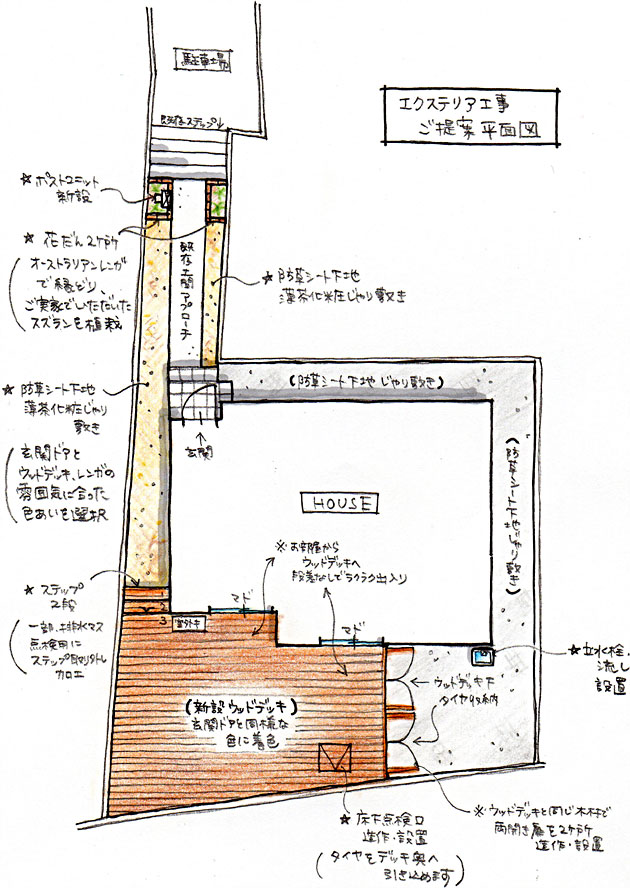 駐車場
エクステリア工事
ご提案平面図
既存ステップ↓
☆ポストユニット
新設
☆ 花だん2ヶ所
オーストラリアンレンガ
で縁どり、
ご実家でいただいた
スズランを植栽
既存土間アプローチ
☆防草シート下地
薄茶化粧じゃり敷き
☆ 防草シート下地
薄茶化粧じゃり
敷き
玄関ドアと
ウッドデッキ、レンガの
雰囲気に合った
色あいを選択
(防草シート下地 じゃり敷き)
(防草シート下地じゃり敷き)
玄関
HOUSE
※お部屋から
ウッドデッキへ
段差なしでラクラク出入り
☆ステップ
2段
一部、排水マス
点検用に
ステップ取りはずし
加工
1
2
3
室外キ
マド
マド
☆立水栓、
流し
設置
ウッドデッキ下
タイヤ収納
(新設ウッドデッキ)
玄関ドアと同様な
色に着色
☆床下点検口
造作・設置
(タイヤをデッキ奥へ
引き込めます)
※ウッドデッキと同じ木材で
両開き扉を2ヶ所
造作・設置